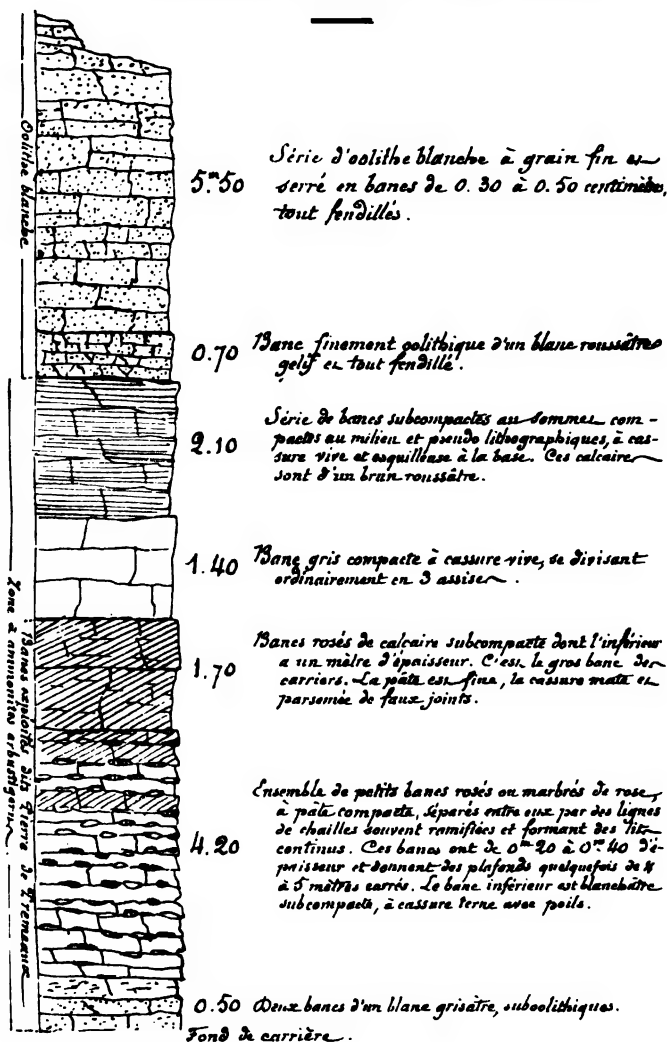 Oolithe blanche
5m50
Série d'oolithe blanche à grain fin et
serré en bancs de 0.30 à 0.50 centimètres,
tout fendillés.
0.70
Banc finement oolithique d'un blanc roussâtre
gelif et tout fendillé.
2.10
Série de bancs subcompactes au sommet com-
pactes au milieu et pseudo lithographiques, à cas-
sure vive et esquilleuse à la base. Ces calcaires
sont d'un brun roussâtre.
1.40
Banc gris compacte à cassure vive, se divisant
ordinairement en 3 assises.
1.70
Bancs rosés de calcaire subcompacte dont l'inférieur
a un mètre d'épaisseur. C'est le gros banc des
carriers. La pâte est fine, la cassure mate et
parsemée de faux joints.
4.20
Ensemble de petits bancs rosés ou marbrés de rose,
à pâte compacte, séparés entre eux par des lignes
de chailles souvent ramifiées et formant des lits
continus. Ces bancs ont de 0m20 à 0m40 d'é-
paisseur et donnent des plafonds quelquefois de 4
à 5 mètres carrés. Le banc inférieur est blanchâtre
subcompacte, à cassure terne avec poils.
0.50 Deux bancs d'un blanc grisâtre, suboolithiques.
Fond de carrière.
Zone à ammonites arbustigerus.
Bancs exploités dits Pierre de Premeaux